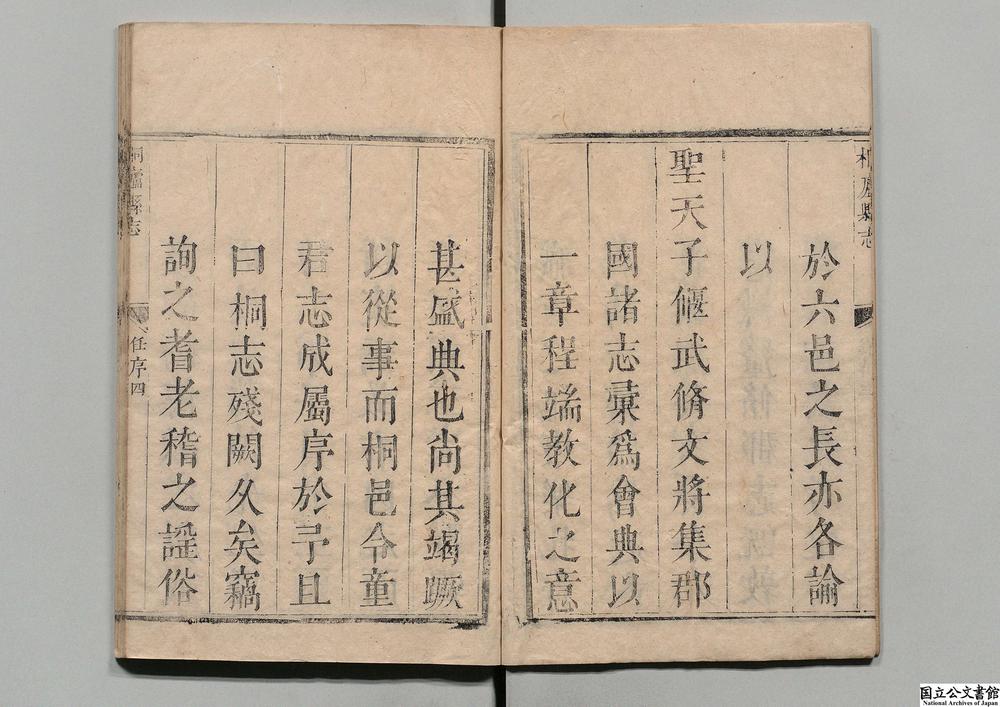 桐廬縣志
於六邑之長亦各諭
以
聖天子偃武脩文將集郡
國諸志彙爲會典以
一章程端教化之意
甚盛典也尚其竭蹶
以從事而桐邑令童
君志成屬序於予且
曰桐志殘闕久矣竊
詢之耆老稽之謡俗
桐廬縣志
任序四
国立公文書館
National Archives of Japan